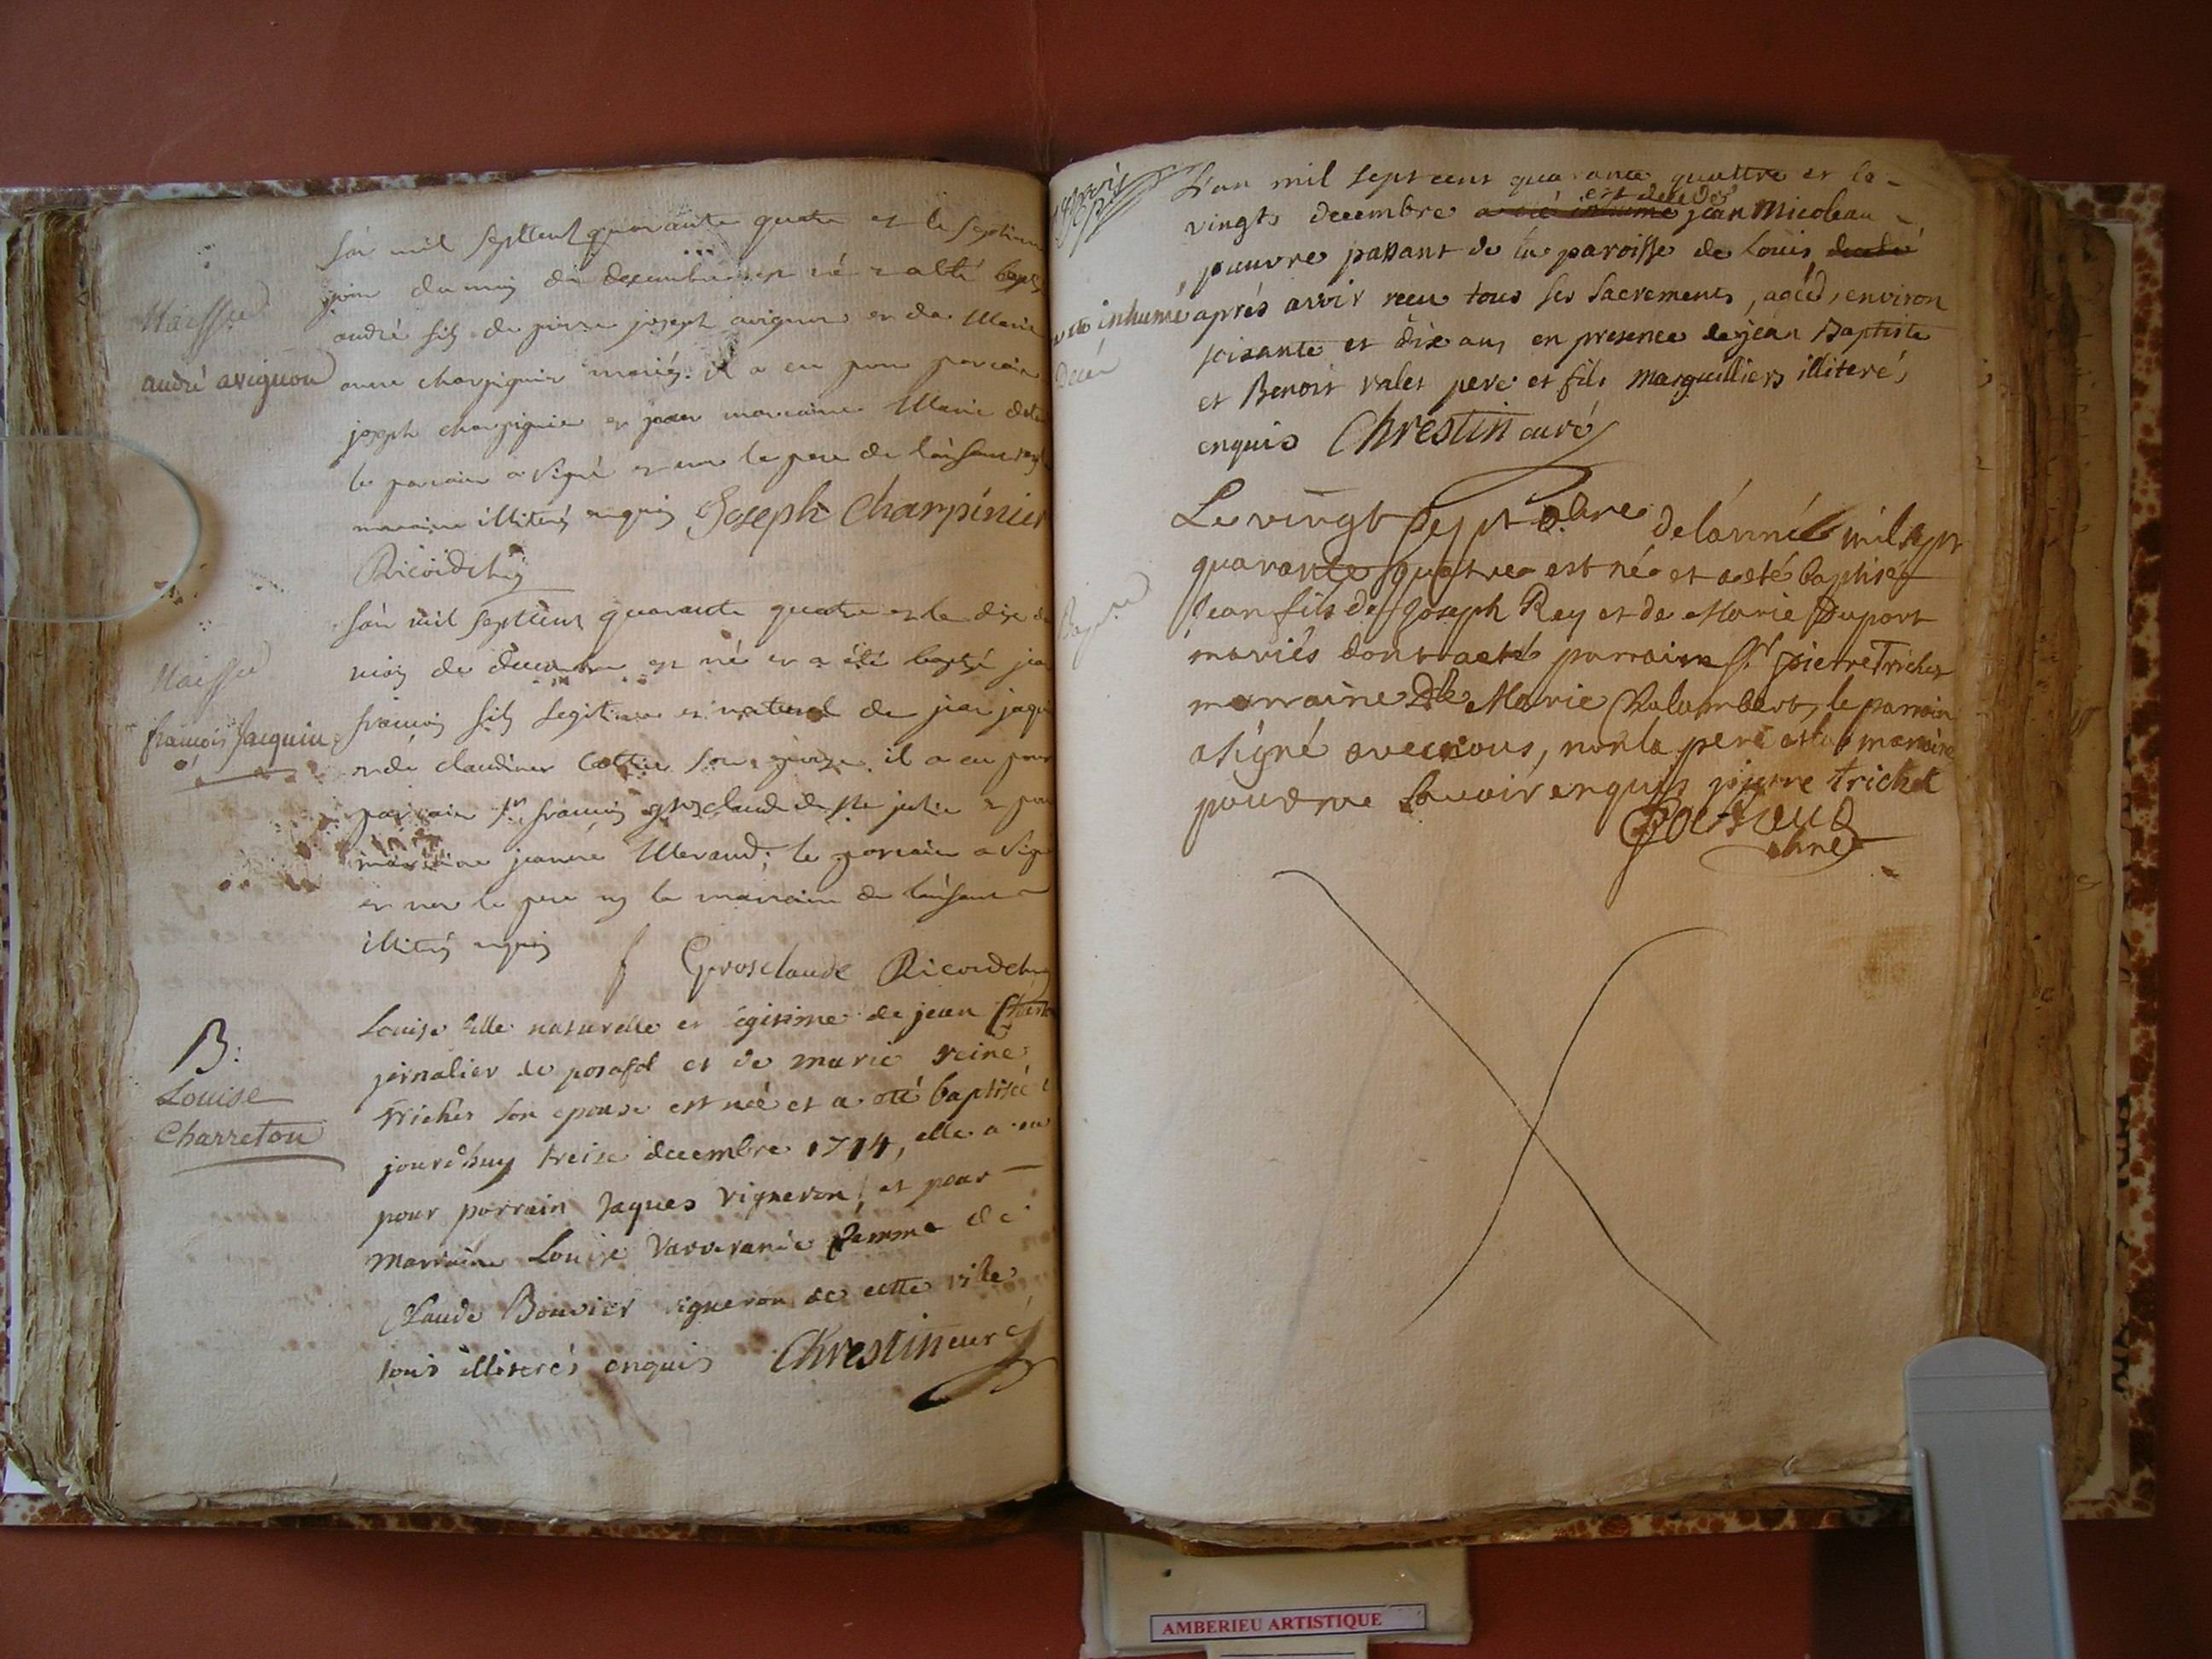 l'an mil septcent quarante quatre et le septieme
jour du mois de decembre est né et a eté bapt
Naissce
andré avignon
andré fils de pierre joseph avignon et de Marie
anne charpignier mariés. il a eu pour parrain
joseph charpignier et pour marraine Marie
le parrain a signé et non le pere de l'enfant
marraine illiterés enquis Joseph Charpinier
l'an mil septcent quarante quatre et le dix du
mois de decembre est né et a eté baptisé jean
Naissce
francois Jacquin
francois fils legitime et naturel de jean jaqu
et de claudine Cottin son epouse. il a eu pour
parrain sr francois grosclaude de ste julie et pour
marraine jeanne Meraud; le parrain a signé
et non le pere ny la marraine de l'enfant
illiterés enquis Grosclaude
B:
Louise
Charreton
Louise fille naturelle et legitime de jean
jornalier de posafol et de marie reine
trichet son epouse est née et a eté baptisée
jourdhuy treise decembre 1744, elle a eu
pour parrain Jaques vigneron, et pour
marraine Louise Varvarande femme de
Claude Bouvier vigneron de cette ville
tous illiterés enquis Chrestin curé
L'an mil sept cent quarante quattre et le
est decedé
vingts decembre a eté inhumé jean Micoleau
pauvre passant de la paroisse de Louis
a eté inhumé aprés avoir receu tous ses sacrements, agéd, environ
Decen
soixante et dix ans en presence de jean Baptiste
et Benoit valet pere et fils marguilliers illiterés
enquis Chrestin curé
Le vingt sept xbre de l'année mil sept
quarante quatre est né et a eté baptisé
Jean fils de Joseph Rey et de Marie Duport
mariés dont a eté parrain Sr pierre Trichet
marraine Dlle Marie Chalambert, le parrain
a signé avec nous, non la pere et la marraine
pour ne savoir enquis pierre trichet
AMBERIEU ARTISTIQUE